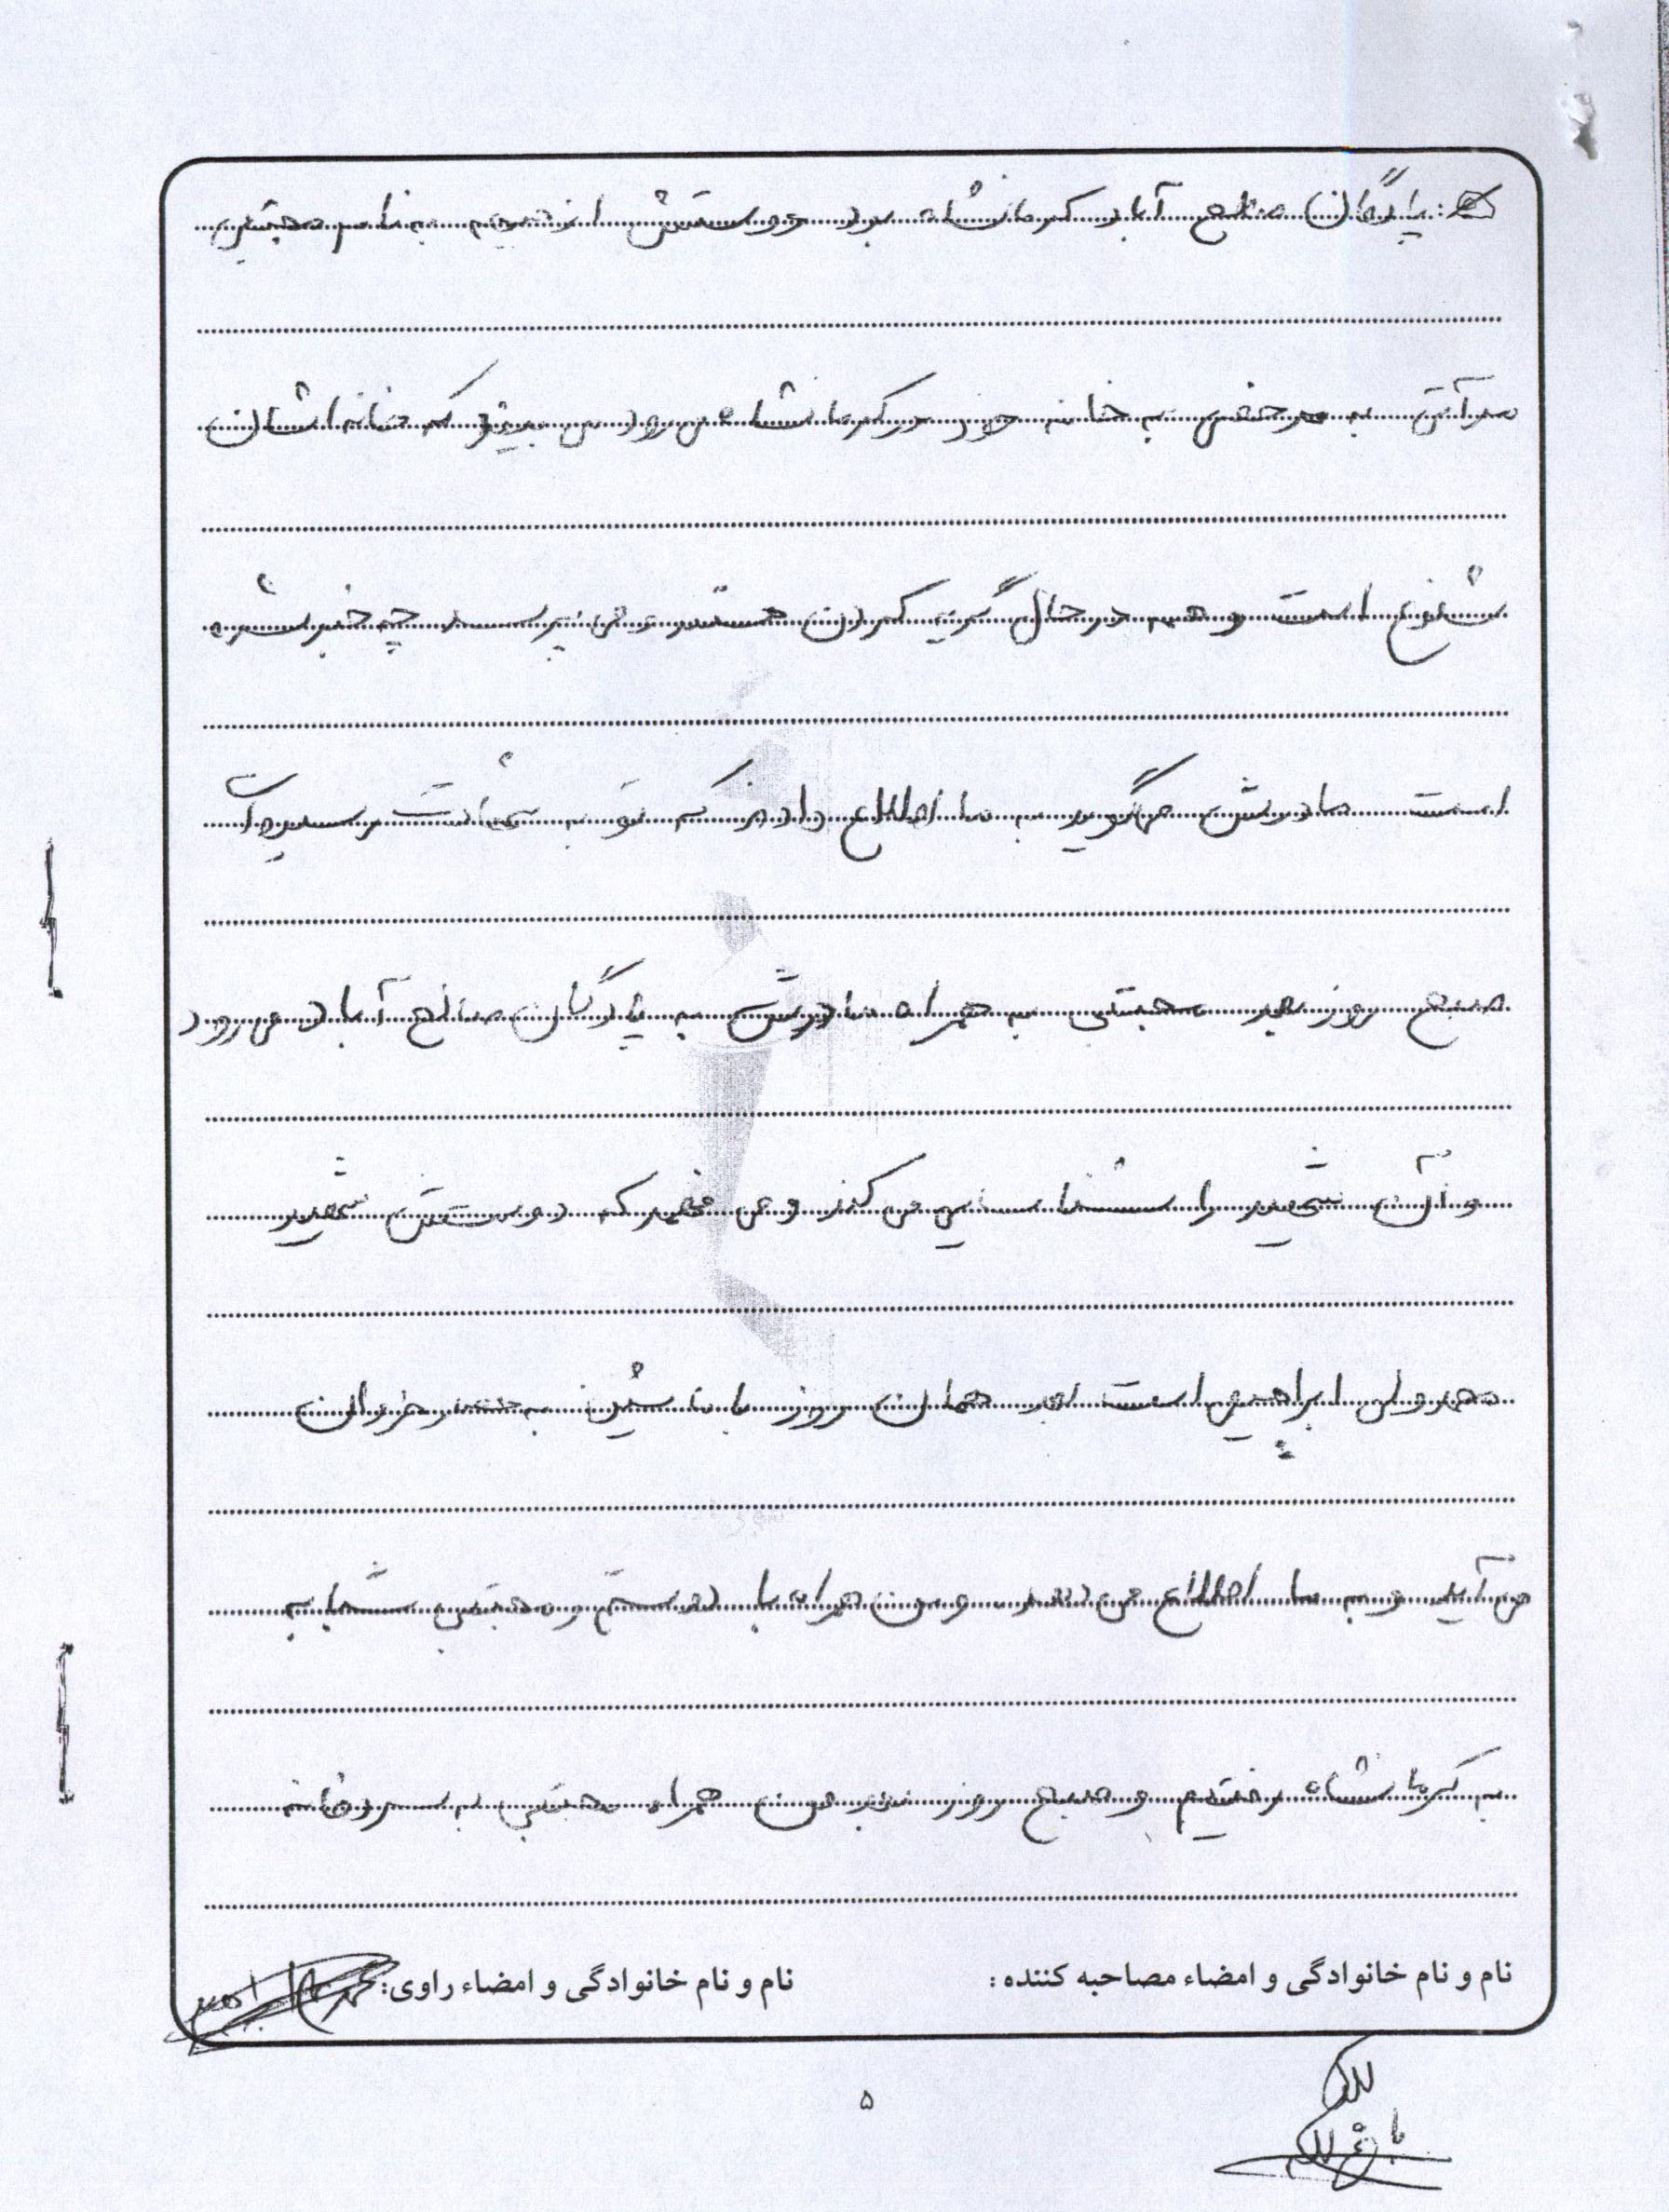 : پادگان صالح آباد کرمانشاه بود دوستش از تیم به نام مجتبی
مرآتی به مرخصی به خانه خود در کرمانشاه می رود می بیند که خانه اشان
شلوغ است و همه در حال گریه کردن هستند و می پرسد چه خبر شده
است مادرش می گوید به ما اطلاع دادند که تو به شهادت رسیده ای
صبح روز بعد مجتبی به همراه مادرش به پادگان صالح آباد می رود
و آن شهید را شناسایی می کند و می فهمد که دوستش شهید
مهدولی ابراهیمی است بعد همان روز با ماشین به
می آید و به ما اطلاع می دهد و من همراه با دوستم و مجتبی شبانه
به کرمانشاه رفتیم و صبح روز بعد من همراه مجتبی به سردخانه
نام و نام خانوادگی و امضاء مصاحبه کننده :
نام و نام خانوادگی و امضاء راوی:
۵